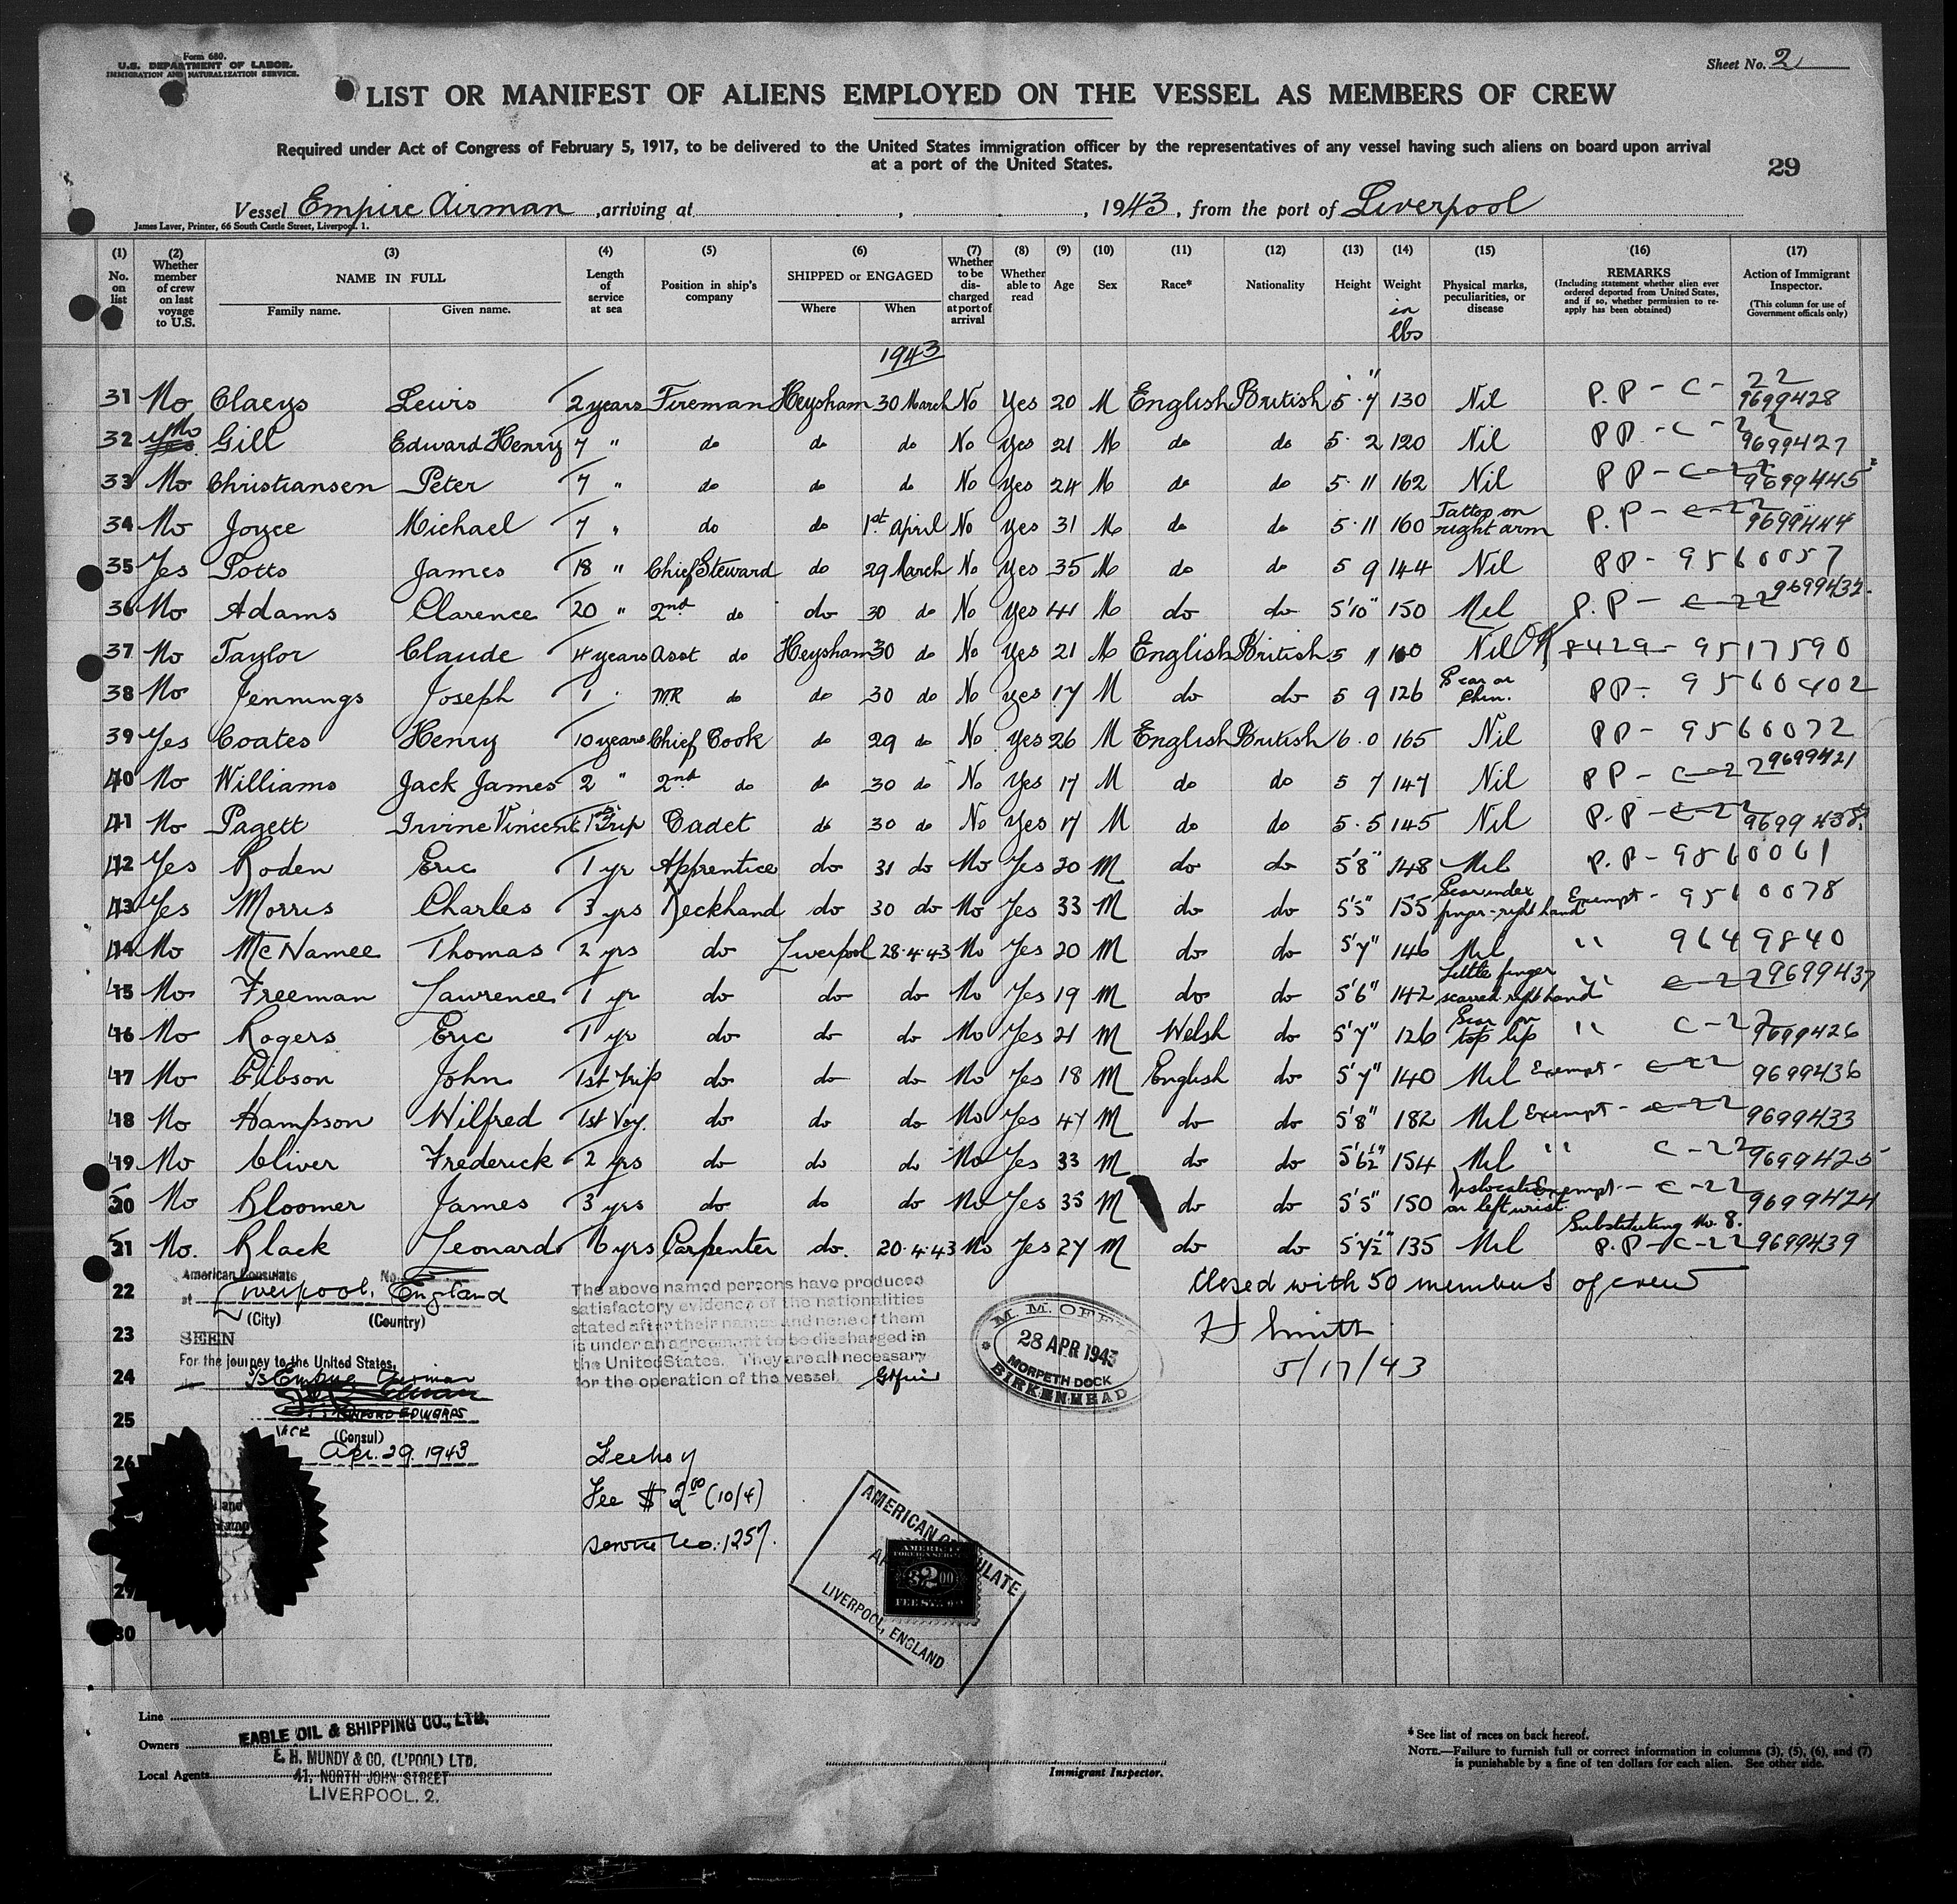 Form 680.
U.S. DEPARTMENT OF LABOR.
IMMIGRATION AND NATURALIZATION SERVICE.
Sheet No. 2
LIST OR MANIFEST OF ALIENS EMPLOYED ON THE VESSEL AS MEMBERS OF CREW
Required under Act of Congress of February 5, 1917, to be delivered to the United States immigration officer by the representatives of any vessel having such aliens on board upon arrival
at a port of the United States.
29
Vessel Empire Airman, arriving at , , 1943, from the port of Liverpool
James Laver, Printer, 66 South Castle Street, Liverpool. 1.
(1) No. on list (2) Whether member of crew on last voyage to U.S. (3) NAME IN FULL Family name. Given name. (4) Length of service at sea (5) Position in ship's company (6) SHIPPED or ENGAGED Where When (7) Whether to be discharged at port of arrival (8) Whether able to read (9) Age (10) Sex (11) Race* (12) Nationality (13) Height (14) Weight in lbs (15) Physical marks, peculiarities, or disease (16) REMARKS (Including statement whether alien ever ordered deported from United States, and if so, whether permission to re-apply has been obtained) (17) Action of Immigrant Inspector. (This column for use of Government officals only)
1943
31 No Claeys Lewis 2 years Fireman Heysham 30 March No Yes 20 M English British 5·7 130 Nil P.P - C - 22 9699428
32 No Gill Edward Henry 7 " do do do No Yes 21 M do do 5·2 120 Nil PP - C - 22 9699427
33 No Christiansen Peter 7 " do do do No Yes 24 M do do 5·11 162 Nil PP - C-22 9699445
34 No Joyce Michael 7 " do do 1st April No Yes 31 M do do 5·11 160 Tattoo on right arm P.P - C-22 9699444
35 Yes Potts James 18 " Chief Steward do 29 March No Yes 35 M do do 5 9 144 Nil PP - 9560057
36 No Adams Clarence 20 " 2nd do do 30 do No Yes 41 M do do 5'10" 150 Nil P.P - C-22 9699432
37 No Taylor Claude 4 years Asst do Heysham 30 do No Yes 21 M English British 5 11 160 Nil OK 8429 - 9517590
38 No Jennings Joseph 1 " MR do do 30 do No Yes 17 M do do 5 9 126 Scar on Chin. PP - 9560402
39 Yes Coates Henry 10 years Chief Cook do 29 do No Yes 26 M English British 6·0 165 Nil PP - 9560072
40 No Williams Jack James 2 " 2nd do do 30 do No Yes 17 M do do 5 7 147 Nil PP - C-22 9699421
41 No Pagett Irvine Vincent 1st Trip Cadet do 30 do No Yes 17 M do do 5·5 145 Nil P.P - C-22 9699438
42 Yes Roden Eric 1 yr Apprentice do 31 do No Yes 20 M do do 5'8" 148 Nil P.P - 9560061
43 Yes Morris Charles 3 yrs Deckhand do 30 do No Yes 33 M do do 5'5" 155 Scar index finger - right hand Exempt - 9560078
44 No McNamee Thomas 2 yrs do Liverpool 28·4·43 No Yes 20 M do do 5'7" 146 Nil " 9649840
45 No Freeman Lawrence 1 yr do do do No Yes 19 M do do 5'6" 142 Little finger scarred right hand " C-22 9699437
46 No Rogers Eric 1 yr do do do No Yes 21 M Welsh do 5'7" 126 Scar on top lip " C-22 9699426
47 No Gibson John 1st Trip do do do No Yes 18 M English do 5'7" 140 Nil Exempt - C-22 9699436
48 No Hampson Wilfred 1st Voy. do do do No Yes 47 M do do 5'8" 182 Nil Exempt - C-22 9699433
49 No Oliver Frederick 2 yrs do do do No Yes 33 M do do 5'6½" 154 Nil " C-22 9699425
50 No Bloomer James 3 yrs do do do No Yes 35 M do do 5'5" 150 Dislocation on left wrist Exempt - C-22 9699424
51 No. Black Leonard 6 yrs Carpenter do. 20·4·43 No Yes 27 M do do 5'7½" 135 Nil Substituting No. 8. P.P - C-22 9699439
22 Closed with 50 members of crew
American Consulate No.
at Liverpool, England
(City) (Country)
The above named persons have produced
satisfactory evidence of the nationalities
stated after their names and none of them
is under an agreement to be discharged in
the United States. They are all necessary
for the operation of the vessel.
M. M. OFFICE
28 APR 1943
MORPETH DOCK
BIRKENHEAD
H Smith
5/17/43
23
SEEN
For the journey to the United States,
24
S/S Empire Airman
25
EDWARDS
VICE (Consul)
26
Apr. 29. 1943
Fee $2.00 (10/4)
Service No. 1257.
AMERICAN CONSULATE
LIVERPOOL, ENGLAND
AMERICAN
FOREIGN SERVICE
$2.00
FEE STAMP
29
30
Line
Owners EAGLE OIL & SHIPPING CO., LTD.
E. H. MUNDY & CO. (L'POOL) LTD.
Local Agents 41, NORTH JOHN STREET
LIVERPOOL. 2.
Immigrant Inspector.
* See list of races on back hereof.
NOTE.—Failure to furnish full or correct information in columns (3), (5), (6), and (7)
is punishable by a fine of ten dollars for each alien. See other side.